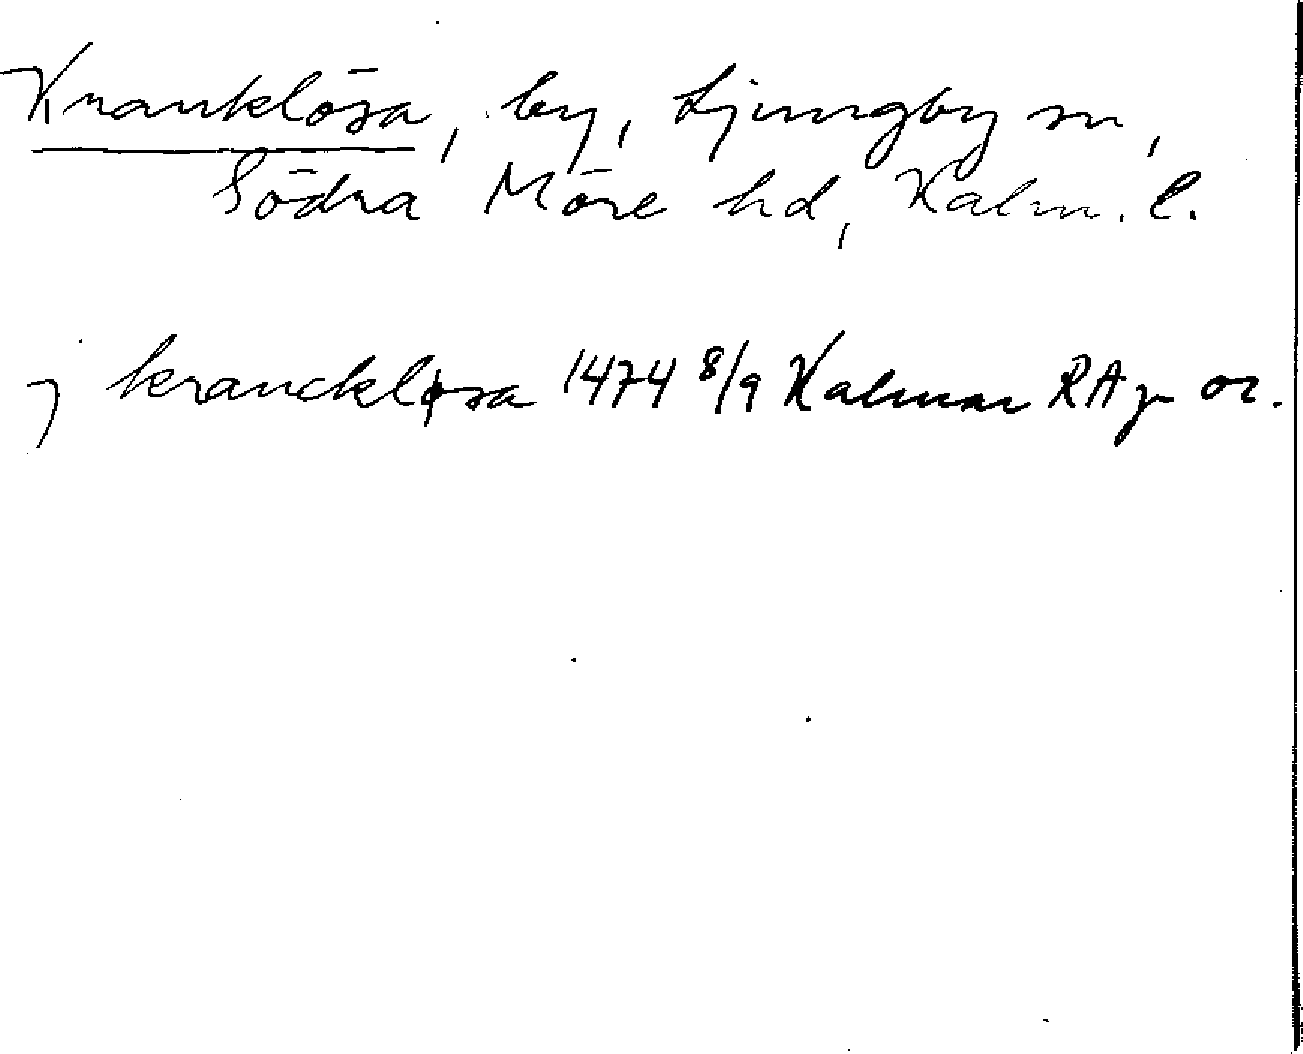 Kranklösa, by, Ljungby sn,
Södra Möre hd, Kalm. l.
j kranckløsa 1474 8/9 Kalmar RAp or.